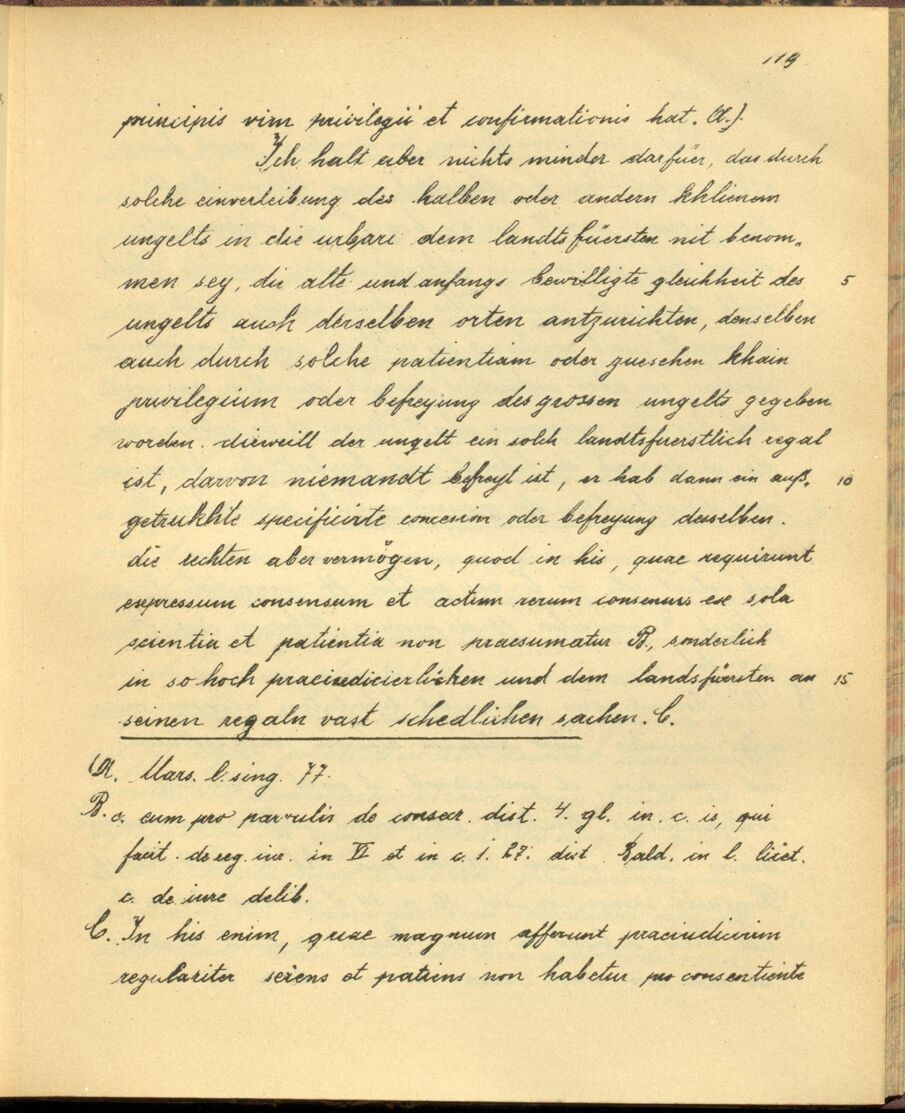 119
principis vim privilegii et confirmationis hat. (A.).
Ich halt aber nichts minder darfüer, das durch
solche einverleibung des halben oder andern khlienern
ungelts in die urbari dem landtsfüersten nit benom„
men sey, die alte und anfangs bewilligte gleichheit des 5
ungelts auch derselben orten antzurichten, denselben
auch durch solche patientiam oder zuesehen khain
privilegium oder befreyung des grossen ungelts gegeben
worden. dieweill der ungelt ein solch landtsfuerstlich regal
ist, darvon niemandt befreyt ist, er hab dann ein auß„ 10
getrukhte specificirte concesion oder befreyung desselben.
die rechten aber vermögen, quod in his, quae requirunt
expressum consensum et actum verum consensus ex sola
scientia et patientia non praesumatur B., sonderlich
in so hoch praeiudicierlichen und dem landsfürsten an 15
seinen regaln vast schedlichen sachen. C.
(A. Mars. l. sing. 77.
B. c. cum pro parvulis de consecr. dist. 4. gl. in. c. is, qui
facit. de reg. iur. in VI et in c. 1. 27. dist. Bald. in l. licet.
c. de iure delib.
C. In his enim, quae magnum afferunt praeiudicium
regulariter sciens et patiens non habetur pro consentiente